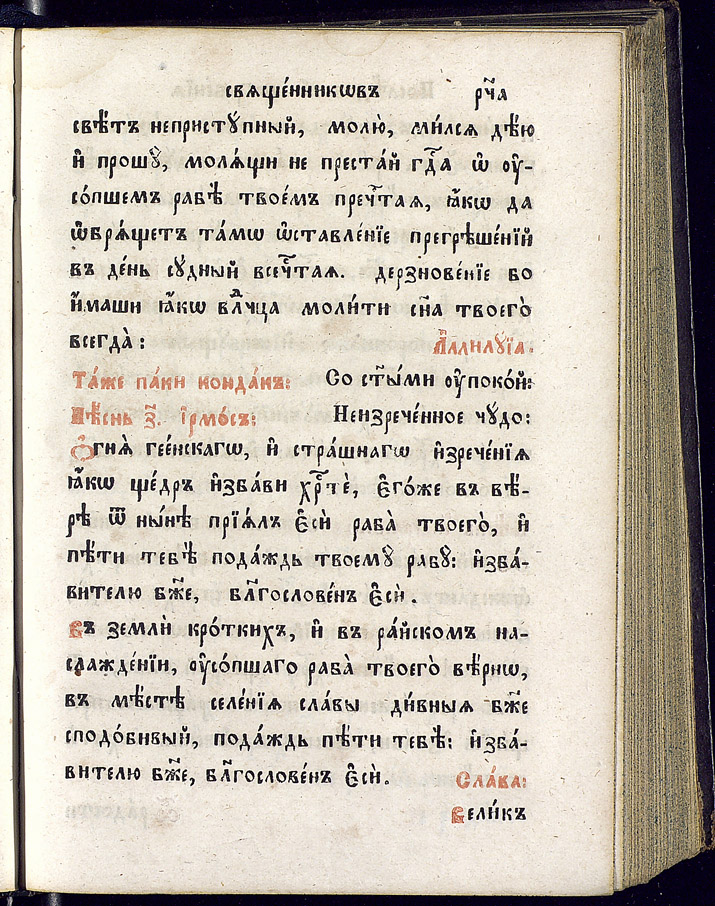 свѧще́нникѡвъ рч҃а
свѣ́тъ непристꙋ́пный, молю̀, ми́лсѧ дѣ́ю
и҆ прошꙋ̀, молѧ́щи не преста́й гдⷭ҇а ѡ҆ оу҆-
со́пшемъ рабѣ̀ твое́мъ пречⷭ҇таѧ, ꙗ҆́кѡ да
ѡ҆брѧ́щетъ та́мѡ ѡ҆ставле́нїе прегрѣше́нїй
въ де́нь сꙋ́дный всечⷭ҇таѧ. дерзнове́нїе бо
и҆́маши ꙗ҆́кѡ влⷣчца моли́ти сн҃а твоего̀
всегда̀:
А҆ллилꙋ́їа.
Та́же па́ки конда́къ: Со ст҃ы́ми оу҆поко́й:
Пѣ́снь з҃. і҆рмо́съ: Неизрече́нное чꙋ́до:
Ѻ҆гнѧ̀ гее́нскагѡ, и҆ стра́шнагѡ и҆зрече́нїѧ
ꙗ҆́кѡ ще́дръ и҆зба́ви хрⷭ҇тѐ, є҆го́же въ вѣ́-
рѣ ѿ ны́нѣ прїѧ́лъ є҆сѝ раба̀ твоего̀, и҆
пѣ́ти тебѣ̀ пода́ждь твоемꙋ̀ рабꙋ̀: и҆зба́-
вителю бж҃е, блⷢ҇ослове́нъ є҆сѝ.
Въ землѝ кро́ткихъ, и҆ въ ра́йскомъ на-
слажде́нїи, оу҆со́пшаго раба̀ твоего̀ вѣ́рнѡ,
въ мѣ́стѣ селе́нїѧ сла́вы ди́вныѧ бж҃е
сподо́бивый, пода́ждь пѣ́ти тебѣ̀: и҆зба́-
вителю бж҃е, блⷢ҇ослове́нъ є҆сѝ. Сла́ва:
Вели́къ